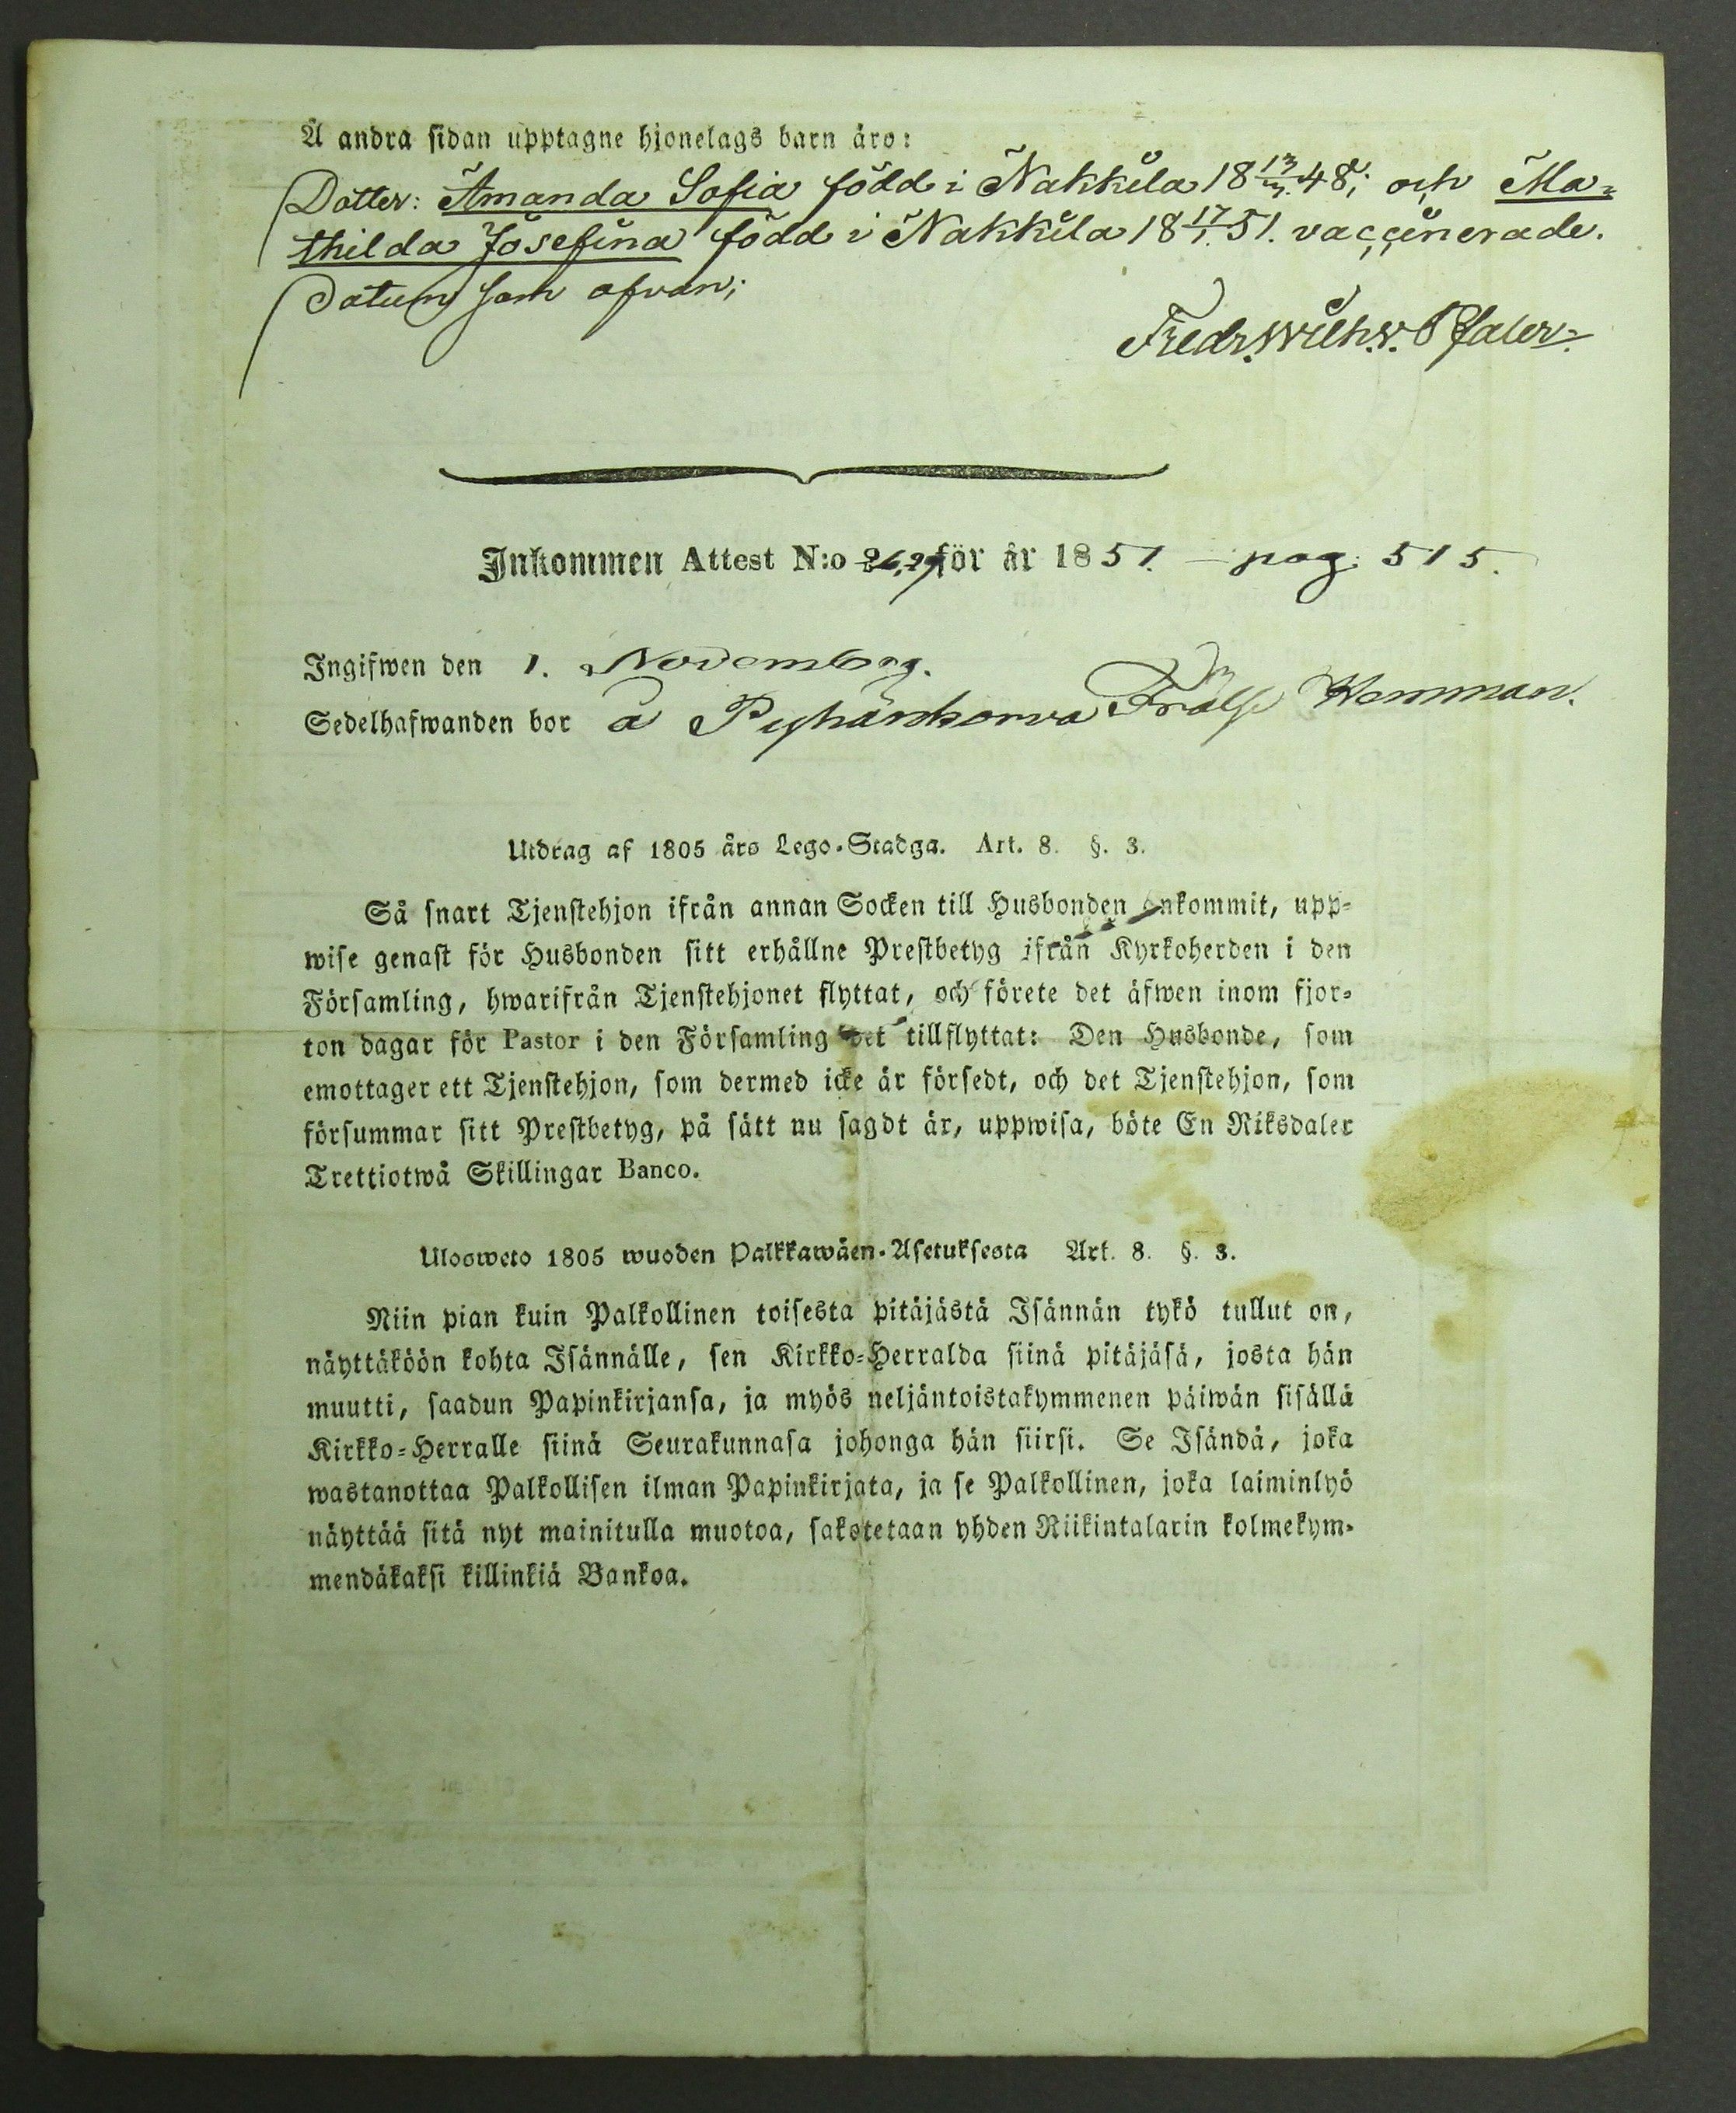 Å andra sidan upptagne hjonelags barn äro:
Dotter: Amanda Sofia född i Nakkila 18 13/3. 48; och Ma=
thilda Josefina född i Nakkila 18 17/1. 51. vaccinerade.
Datum som ofvan;
Fredr. Wilh. v. Pfaler
Inkommen Attest N:o 26,27 för år 1851. pag. 515.
Ingifwen den 1. November.
Sedelhafwanden bor å Pyhänkorva Frälse Hemman.
Utdrag af 1805 års Lego-Stadga. Art. 8. §. 3.
Så snart Tjenstehjon ifrån annan Socken till Husbonden ankommit, upp-
wise genast för Husbonden sitt erhållne Prestbetyg ifrån Kyrkoherden i den
Församling, hwarifrån Tjenstehjonet flyttat, och förete det äfwen inom fjor-
ton dagar för Pastor i den Församling det tillflyttat: Den Husbonde, som
emottager ett Tjenstehjon, som dermed icke är försedt, och det Tjenstehjon, som
försummar sitt Prestbetyg, på sätt nu sagdt är, uppwisa, böte En Riksdaler
Trettiotwå Skillingar Banco.
Ulosweto 1805 wuoden Palkkawäen-Asetuksesta Art. 8. §. 3.
Niin pian kuin Palkollinen toisesta pitäjästä Isännän tykö tullut on,
näyttäköön kohta Isännälle, sen Kirkko-Herralda siinä pitäjäsä, josta hän
muutti, saadun Papinkirjansa, ja myös neljäntoistakymmenen päiwän sisällä
Kirkko-Herralle siinä Seurakunnasa johonga hän siirsi. Se Isändä, joka
wastanottaa Palkollisen ilman Papinkirjata, ja se Palkollinen, joka laiminlyö
näyttää sitä nyt mainitulla muotoa, sakotetaan yhden Riikintalarin kolmekym-
mendäkaksi killinkiä Bankoa.